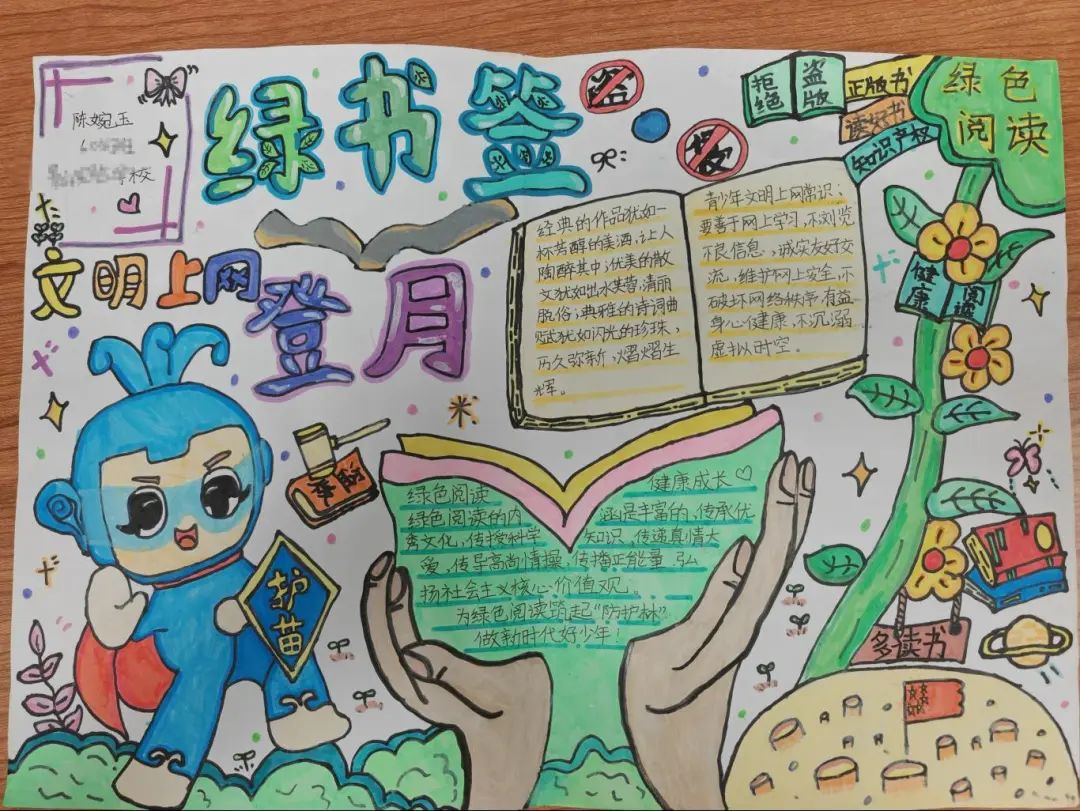 陈婉玉
学校
绿书签
盗
拒绝
盗版
正版书
读好书
知识产权
绿色
阅读
文明上网
登月
经典的作品犹如一
杯芳醇的美酒,让人
陶醉其中;优美的散
文犹如出水芙蓉,清丽
脱俗;典雅的诗词曲
赋犹如闪光的珍珠,
历久弥新,熠熠生
辉。
青少年文明上网常识:
要善于网上学习,不浏览
不良信息、诚实友好交
流,维护网上安全,不
破坏网络秩序,有益
身心健康,不沉溺
虚拟时空。
健康
阅读
护苗
绿色阅读
健康成长
绿色阅读的内 涵是丰富的,传承优
秀文化,传授科学 知识,传递真情大
爱,传导高尚情操,传播正能量,弘
扬社会主义核心价值观。
为绿色阅读筑起“防护林”
做新时代好少年!
多读书